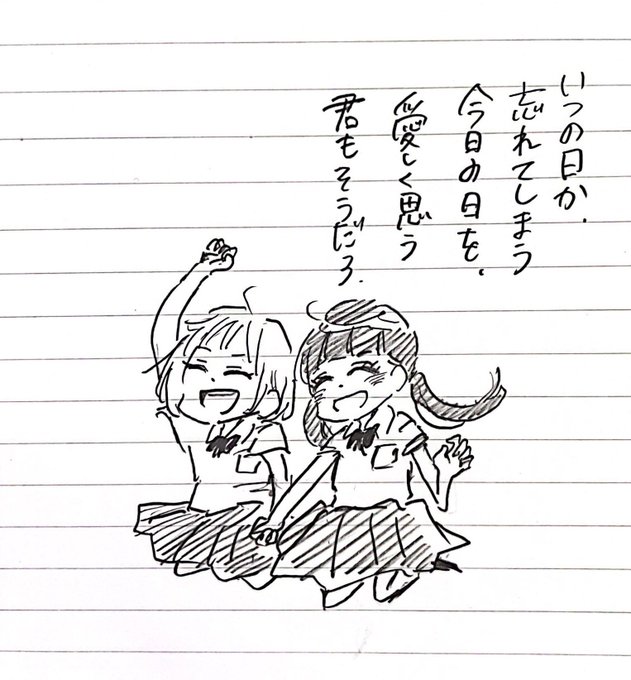 いつの日か、
忘れてしまう
今日の日を、
愛しく思う
君もそうだろ、